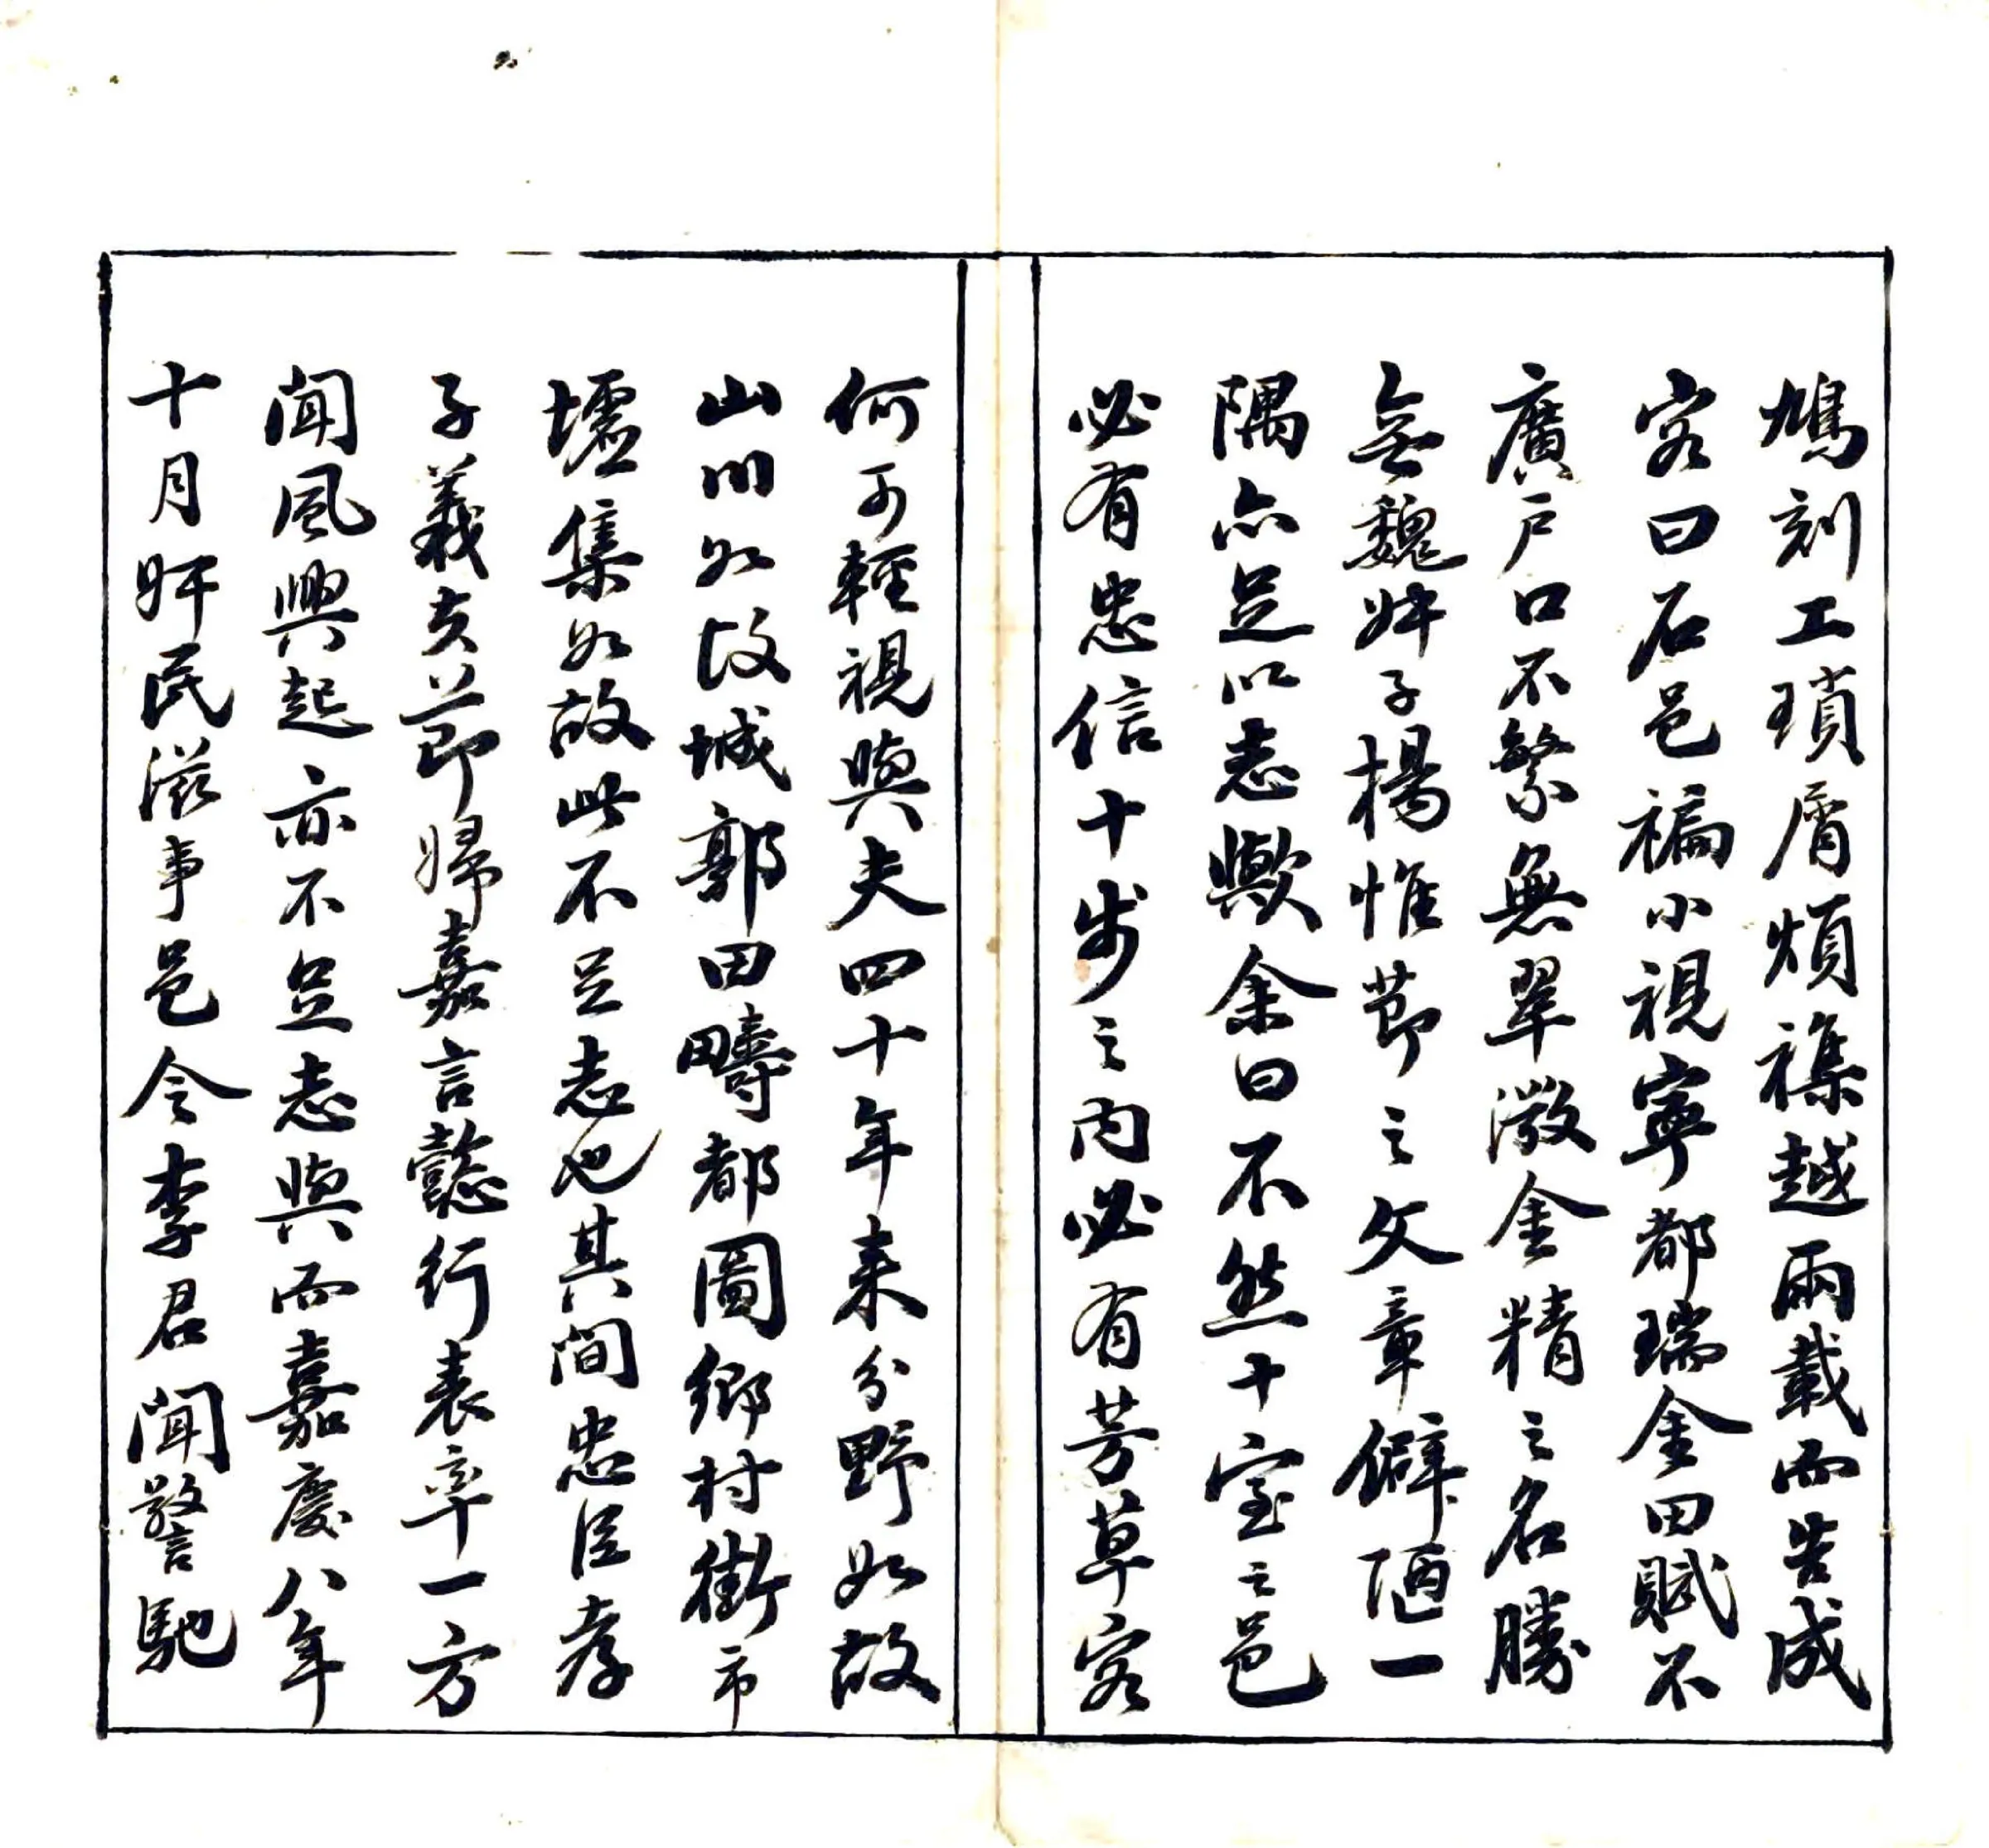 鳩刻工瑣屑煩襍越兩載而告成
客曰石邑褊小視寧都瑞金田賦不
廣戶口不繁無翠微金精之名勝
無魏叔子楊惟節之文章僻陋一
隅亦足以志歟余曰不然十室之邑
必有忠信十步之内必有芳草客
何可輕視與夫四十年来分野如故
山川如故城郭田疇都圖鄉村街市
墟集如故此不足志也其間忠臣孝
子義夫節婦嘉言懿行表率一方
聞風興起亦不足志與而嘉慶八年
十月奸民滋事邑令李君聞警馳